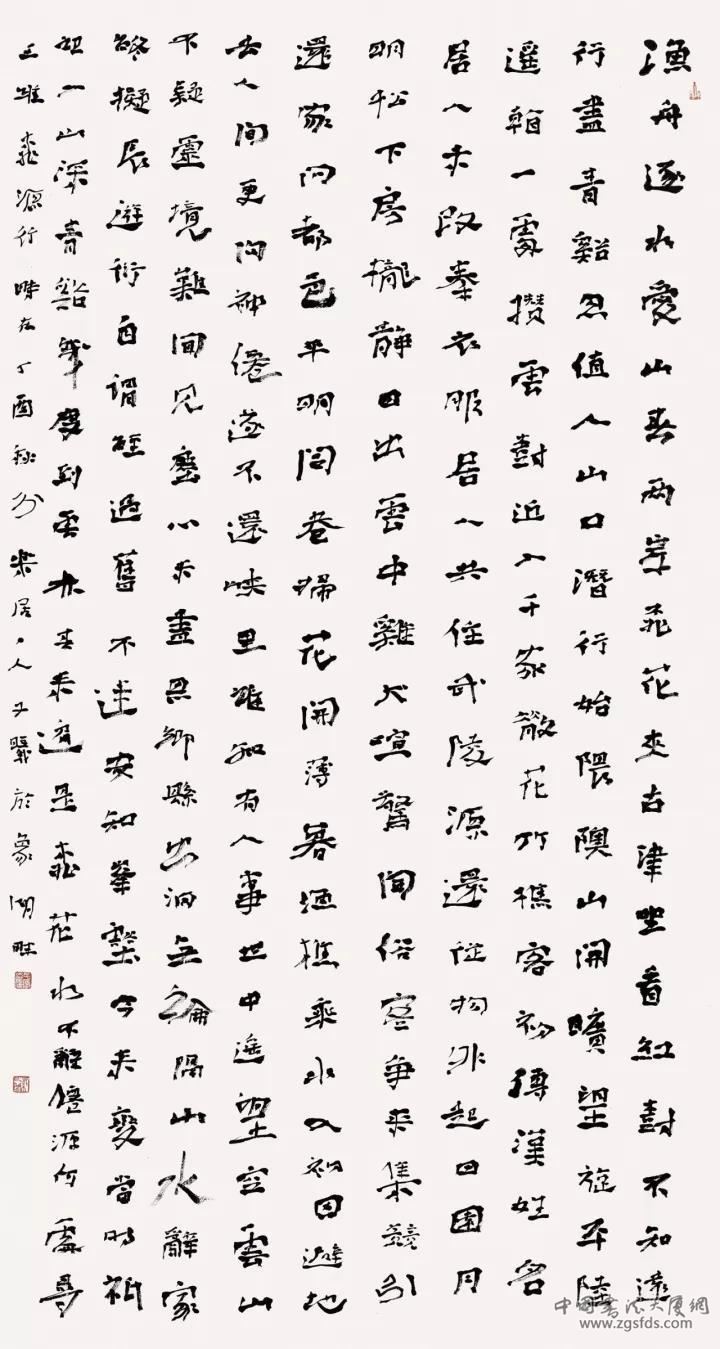 漁舟逐水愛山春兩岸桃花夾古津坐看紅樹不知遠
行盡青谿忽值人山口潛行始隈隩山開曠望旋平陸
遥看一處攢雲樹近入千家散花竹樵客初傳漢姓名
居人未改秦衣服居人共住武陵源還從物外起田園月
明松下房櫳靜日出雲中雞犬喧驚聞俗客爭來集競引
還家問都邑平明閭巷掃花開薄暮漁樵乘水入初因避地
去人間更問神僊遂不還峽里誰知有人事世中遥望空雲山
不疑靈境難聞見塵心未盡思鄉縣出洞無論隔山水辭家
終擬長遊衍自謂經過舊不迷安知峯壑今來變當時衹
記入山深青谿幾度到雲林春來遍是桃花水不辨僊源何處尋
王維桃源行時在丁酉秋分樂居々人於象湖畔
中国書法大厦網
www.zgsfds.com